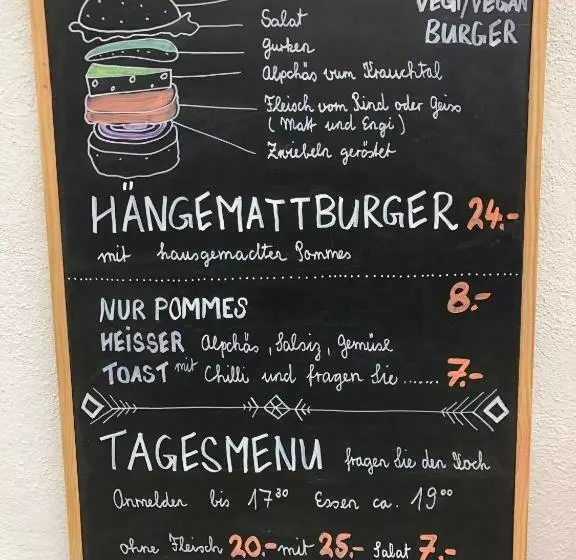 VEGI/VEGAN
BURGER
Salat
gurken
Alpchäs vum Krauchtal
Fleisch vom Rind oder Geiss
(Matt und Engi)
Zwiebeln geröstet
HÄNGEMATTBURGER 24.-
mit hausgemachten Pommes
NUR POMMES 8.-
HEISSER Alpchäs, Salsiz, gemüse
TOAST mit Chilli und fragen Sie ....... 7.-
TAGESMENU fragen Sie den Koch
Anmelden bis 17³⁰ Essen ca. 19⁰⁰
ohne Fleisch 20.- mit 25.- Salat 7.-